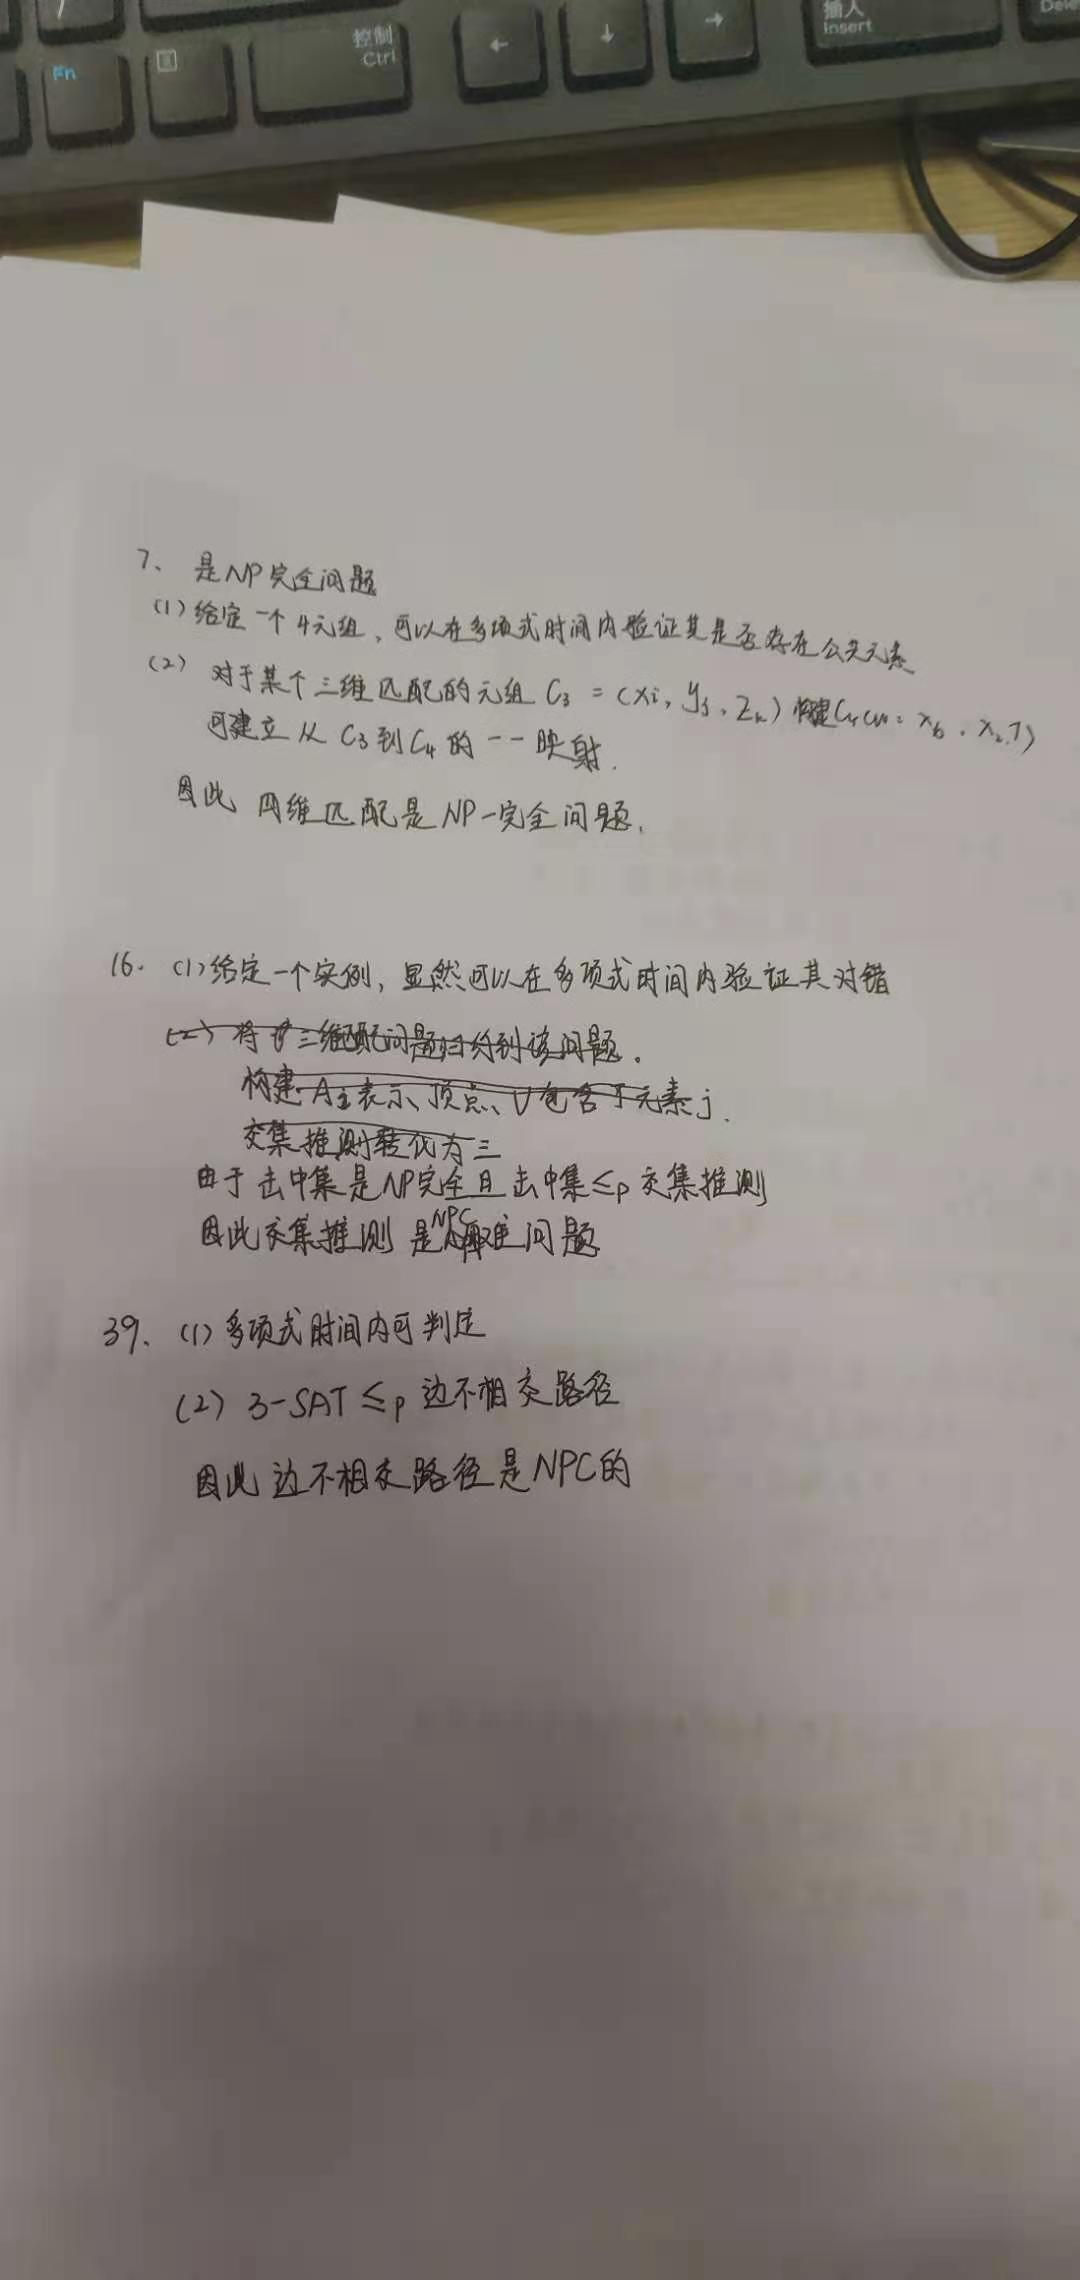 Fn
控制
Ctrl
←
↓
→
插入
Insert
7、是NP完全问题
(1)给定一个4元组,可以在多项式时间内验证其是否存在公共元素
(2) 对于某个三维匹配的元组 C₃ = (xi, yj, zk) 构建C₄
可建立从C₃到C₄的一一映射.
因此 四维匹配是NP-完全问题.
16. (1)给定一个实例,显然可以在多项式时间内验证其对错
(2) 将 三维匹配问题归约到该问题.
构建 Ai表示、顶点、U包含了元素j.
交集推测转化为三
由于击中集是NP完全且 击中集≤p 交集推测
因此交集推测 是NPC 问题
39、(1) 多项式时间内可判定
(2) 3-SAT ≤p 边不相交路径
因此 边不相交路径是NPC的